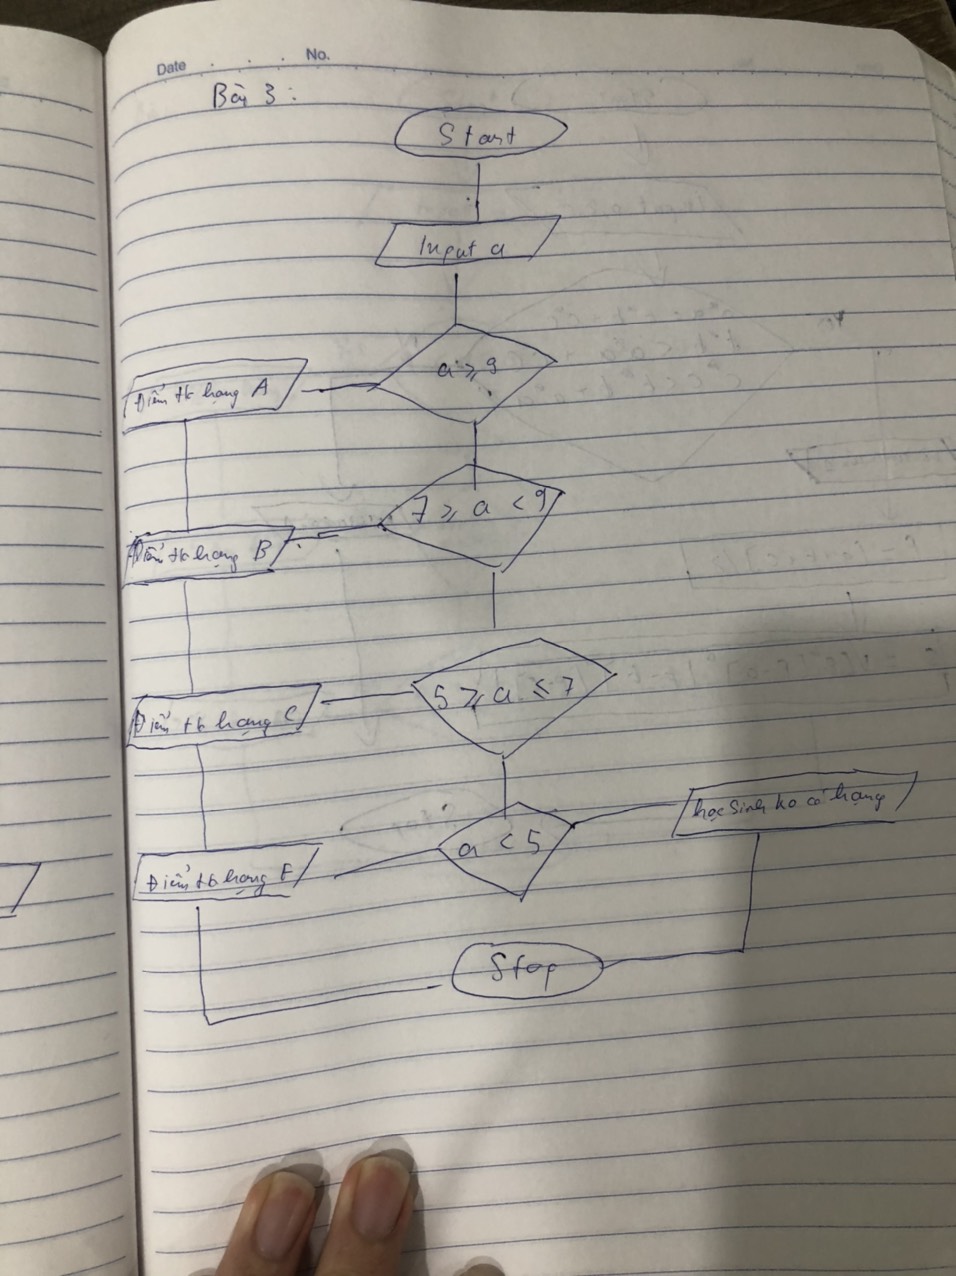 Date No.
Bài 3:
Start
Input a
a ≥ 9
Điểm tk hạng A
7 ≥ a < 9
Điểm tk hạng B
5 ≥ a ≤ 7
Điểm tk hạng C
a < 5
học sinh ko có hạng
Điểm tk hạng F
Stop